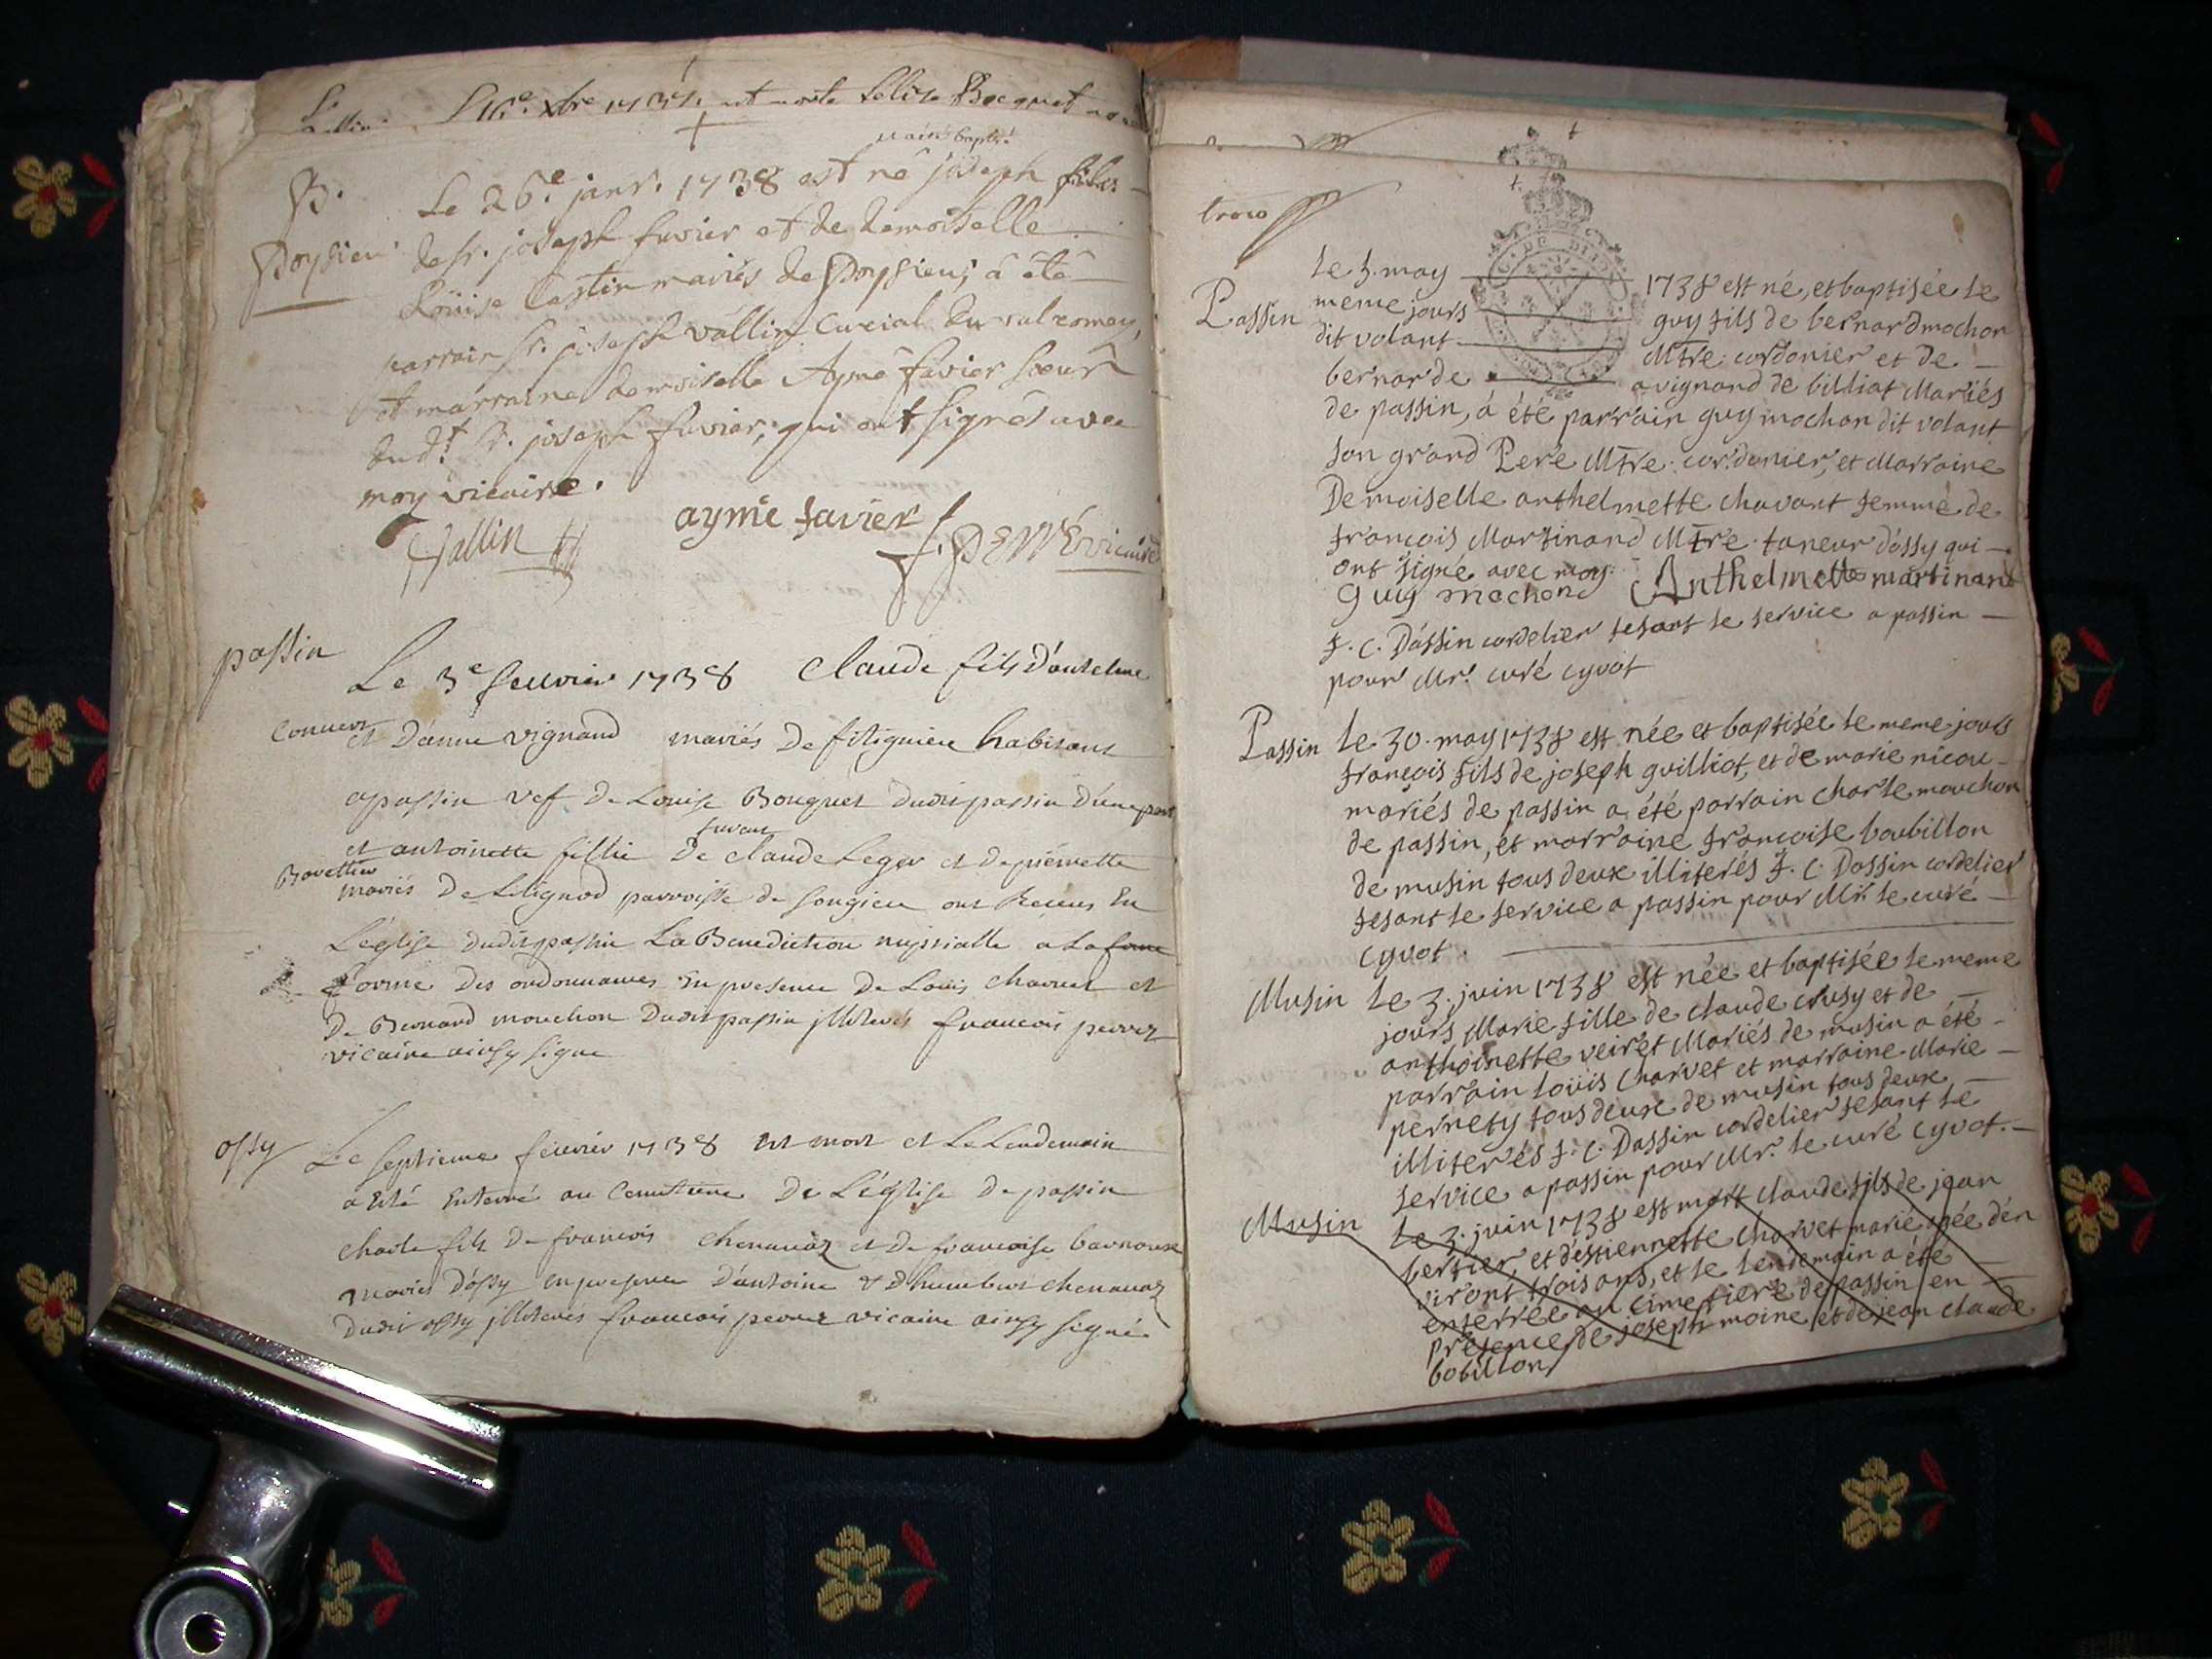 16e. xbre 1737. est morte
B.
uain: baptisé
Poysieu
Le 26e. janv. 1738 est né joseph fils
de sr. joseph favier et de demoiselle
Loüise Castin mariés de Poysieu; a été
parrain sr. joseph vallin curial du valromey,
et marraine demoiselle Aymé favier soeur
dudt. Sr. joseph favier; qui ont signés avec
moy vicaire.
Vallin
aymé favier
vicaire
passin
Le 3e feuvrier 1738 Claude fils d'antelme
Convers
et D'anne vignand mariés De fitignieu habitant
apassin vef De Louise Bouguet dudit passin d'une part
favan
et antoinette fillie De claude Leger et de pierrette
Bovettier
mariés De Lilignod parroisse de Songieu ont Receus En
L'église dudit passin La Benediction nupsialle a La forme
forme Des ordonnances En presence De Louis charvet et
De Bernard mouchon Dudit passin jlliterés francois perret
vicaire ainsy signe
ossy
Le septieme feuvrier 1738 Est mort et Le Lendemain
a Eté Enterré au Cemetiere De L'église De passin
charle fils De francois chenavaz et De francoise barnoux
mariés D'ossy en presence D'antoine & D'humbert chenavaz
Dudit ossy jlliterés francois perret vicaire ainsy signé
trois
Passin
le 3. may 1738 est né, et baptisée le
meme jours guy fils de bernard mochon
dit volant Mtre. cordonier et de
bernarde avignand de billiat Mariés
de passin, a été parrain guy mochon dit volant
son grand Pere Mtre. cordonier, et Marraine
Demoiselle anthelmette chavant femme de
francois Martinand Mtre. taneur d'ossy qui
ont signé avec moy.
guy mochon Anthelmette martinand
f. C. Dassin cordelier fesant le service a passin
pour Mr. curé cyvot
Passin
le 30. may 1738 est née et baptisée le meme jours
françois fils de joseph guilliot, et de marie nicou
mariés de passin a été parrain charle mouchon
de passin, et marraine francoise boubillon
de musin tous deux illiterés f. C. Dassin cordelier
fesant le service a passin pour Mr. le curé
cyvot.
Musin
le 3. juin 1738 est née et baptisée le meme
jours Marie fille de claude crusy et de
anthoinette veiret Mariés de musin a été
parrain loüis charvet et marraine Marie
pernety tous deux de musin tous deux
illiterés f. C. Dassin cordelier fesant le
service a passin pour Mr. le curé cyvot.
Musin
le 3. juin 1738 est mort claude fils de jean
bertier, et d'estiennette charvet marié agée d'en
viront trois ans, et le lendemain a été
enterrée au cimetiere de passin en
presence de joseph moine et de jean claude
bobillon